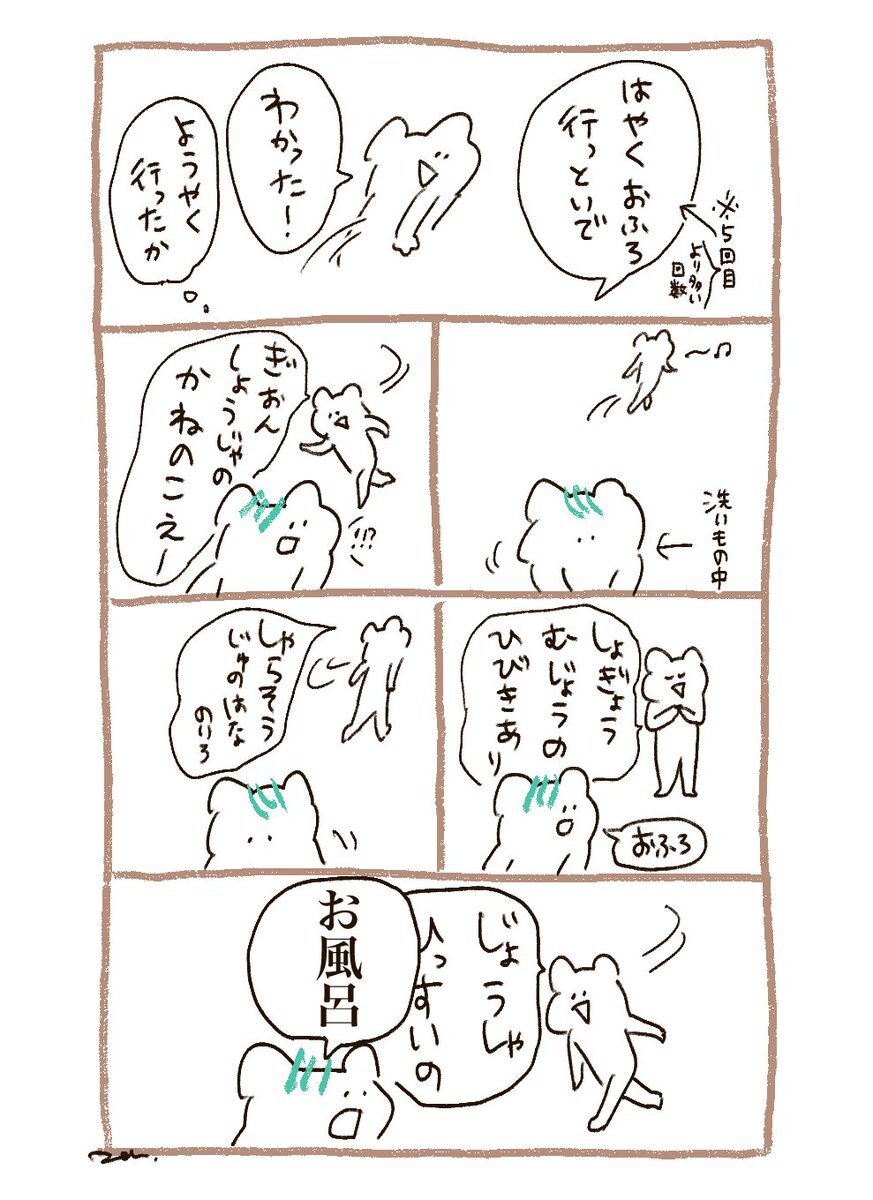 はやくおふろ
行っといで
※5回目
より多い
回数
わかった!
ようやく
行ったか
〜♫
洗いもの中
ぎおん
しょうじゃの
かねのこえー
!!?
しょぎょう
むじょうの
ひびきあり
おふろ
しゃらそう
じゅのはな
のいろ
じょうしゃ
ひっすいの
お風呂